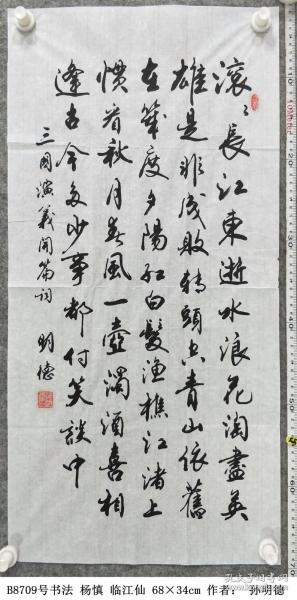 滚〻長江東逝水浪花淘盡英
雄是非成敗转頭空青山依舊
在幾度夕陽红白髮渔樵江渚上
惯看秋月春風一壺濁酒喜相
逢古今多少事都付笑談中
三国演義開篇词 明德
B8709号书法 杨慎 临江仙 68×34cm 作者： 孙明德